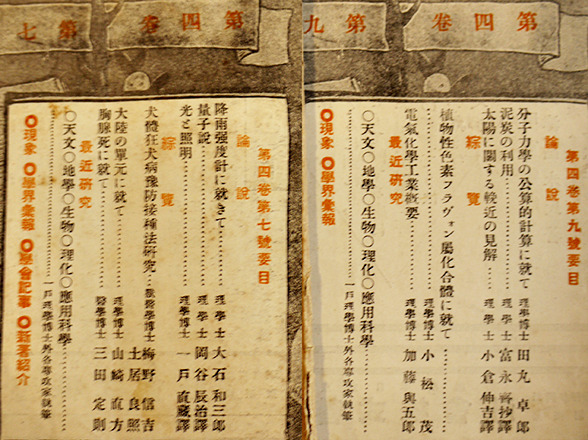 第四卷 第九
第四卷第九號要目
論說
分子力學の公算的計算に就て……理學博士 田丸卓郎
泥炭の利用……理學士 富永齊抄譯
太陽に關する輓近の見解……理學士 小倉伸吉譯
綜覽
植物性色素フラヴォン屬化合體に就て
……理學博士 小松茂
電氣化學工業概要……理學博士 加藤與五郎
最近研究
〇天文〇地學〇生物〇理化〇應用科學
……一戶理學博士外各專攻家執筆
◎現象 ◎學界彙報
第四卷 第七
第四卷第七號要目
論說
降雨强度計に就きて……理學士 大石和三郎
量子說……理學士 岡谷辰治譯
光と照明……理學博士 一戶直藏譯
綜覽
犬體狂犬病豫防接種法硏究…獸醫學博士 梅野信吉
土居良照
大陸の單元に就て……理學博士 山崎直方
胸腺死に就て……醫學博士 三田定則
最近硏究
〇天文〇地學〇生物〇理化〇應用科學……
……一戶理學博士外各專攻家執筆
◎現象 ◎學界彙報 ◎學會記事 ◎新著紹介